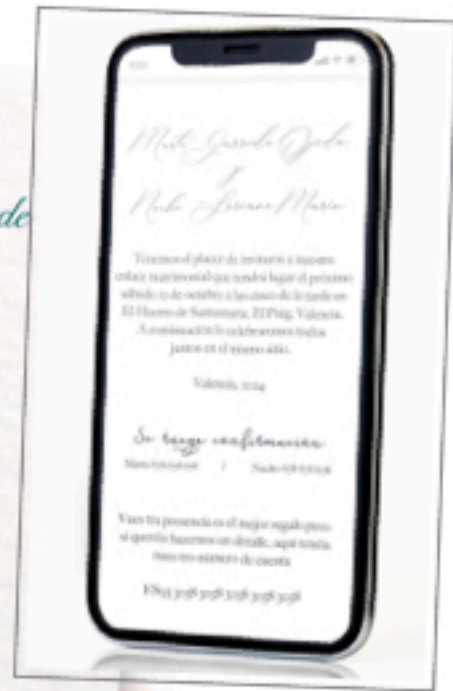 de
Marta Garrido Ojeda
y
Nacho Soriano Marín
Tenemos el placer de invitaros a nuestro
enlace matrimonial que tendrá lugar el próximo
sábado 12 de octubre a las cinco de la tarde en
El Huerto de Santamaría, El Puig, Valencia.
A continuación lo celebraremos todos
juntos en el mismo sitio.
Valencia, 2024
Se ruega confirmación
Marta / Nacho
Vuestra presencia es el mejor regalo pero
si queréis hacernos un detalle, aquí tenéis
nuestro número de cuenta
3058 3058 3058 3058 3058